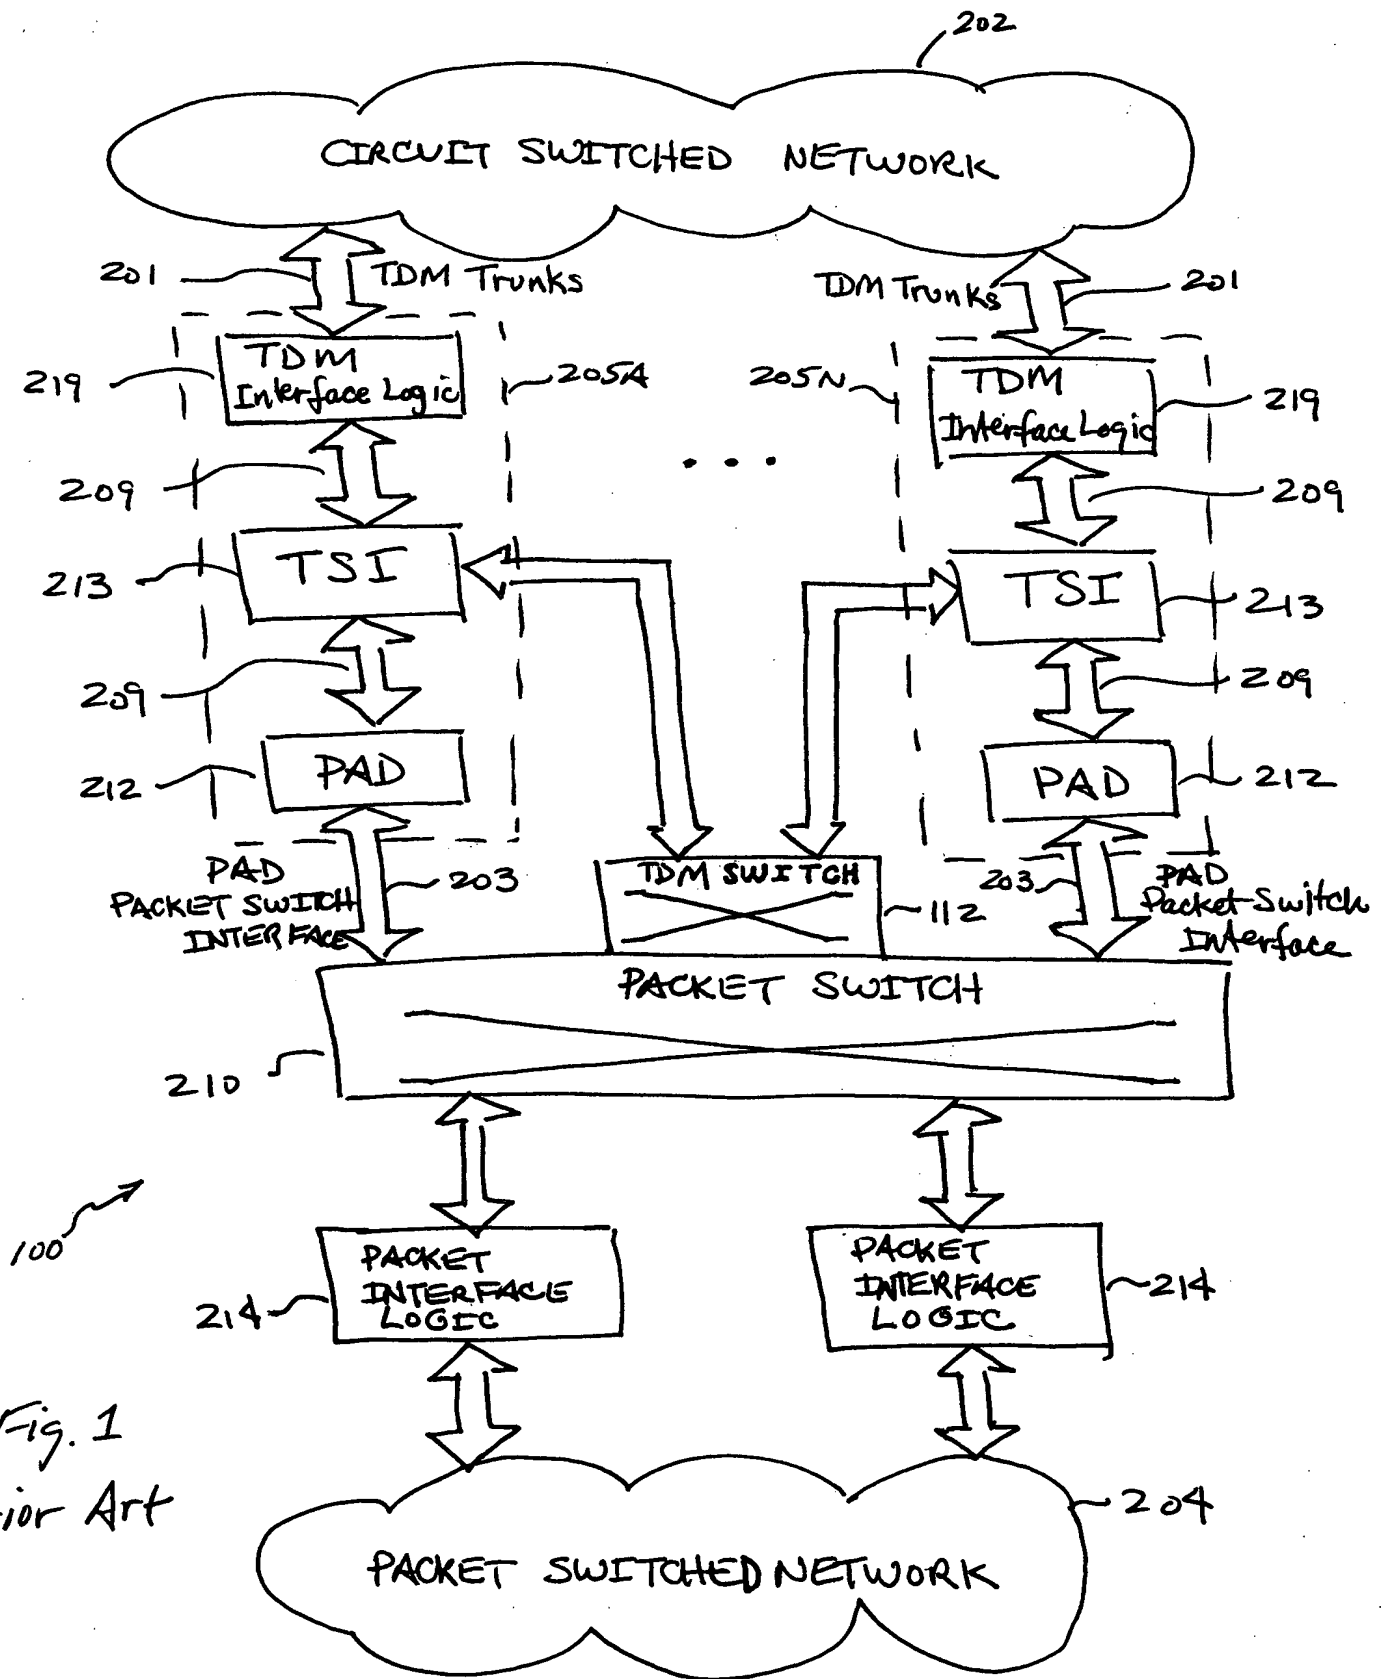 202
CIRCUIT SWITCHED NETWORK
201
TDM Trunks
TDM Trunks
201
219
TDM
Interface Logic
205A
205N
TDM
Interface Logic
219
209
• • •
209
213
TSI
TSI
213
209
209
212
PAD
PAD
212
PAD
PACKET SWITCH
INTERFACE
203
TDM SWITCH
112
203
PAD
Packet-Switch
Interface
PACKET SWITCH
210
100
214
PACKET
INTERFACE
LOGIC
PACKET
INTERFACE
LOGIC
214
Fig. 1
ior Art
204
PACKET SWITCHED NETWORK